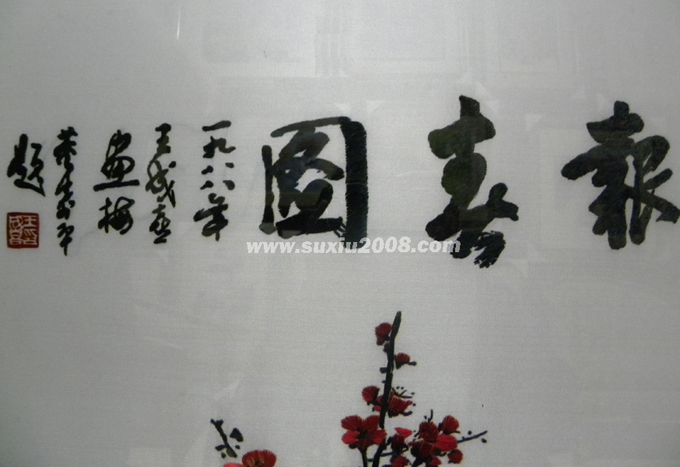 報春圖
一九八八年
王成喜
畫梅
董寿平
題
www.suxiu2008.com